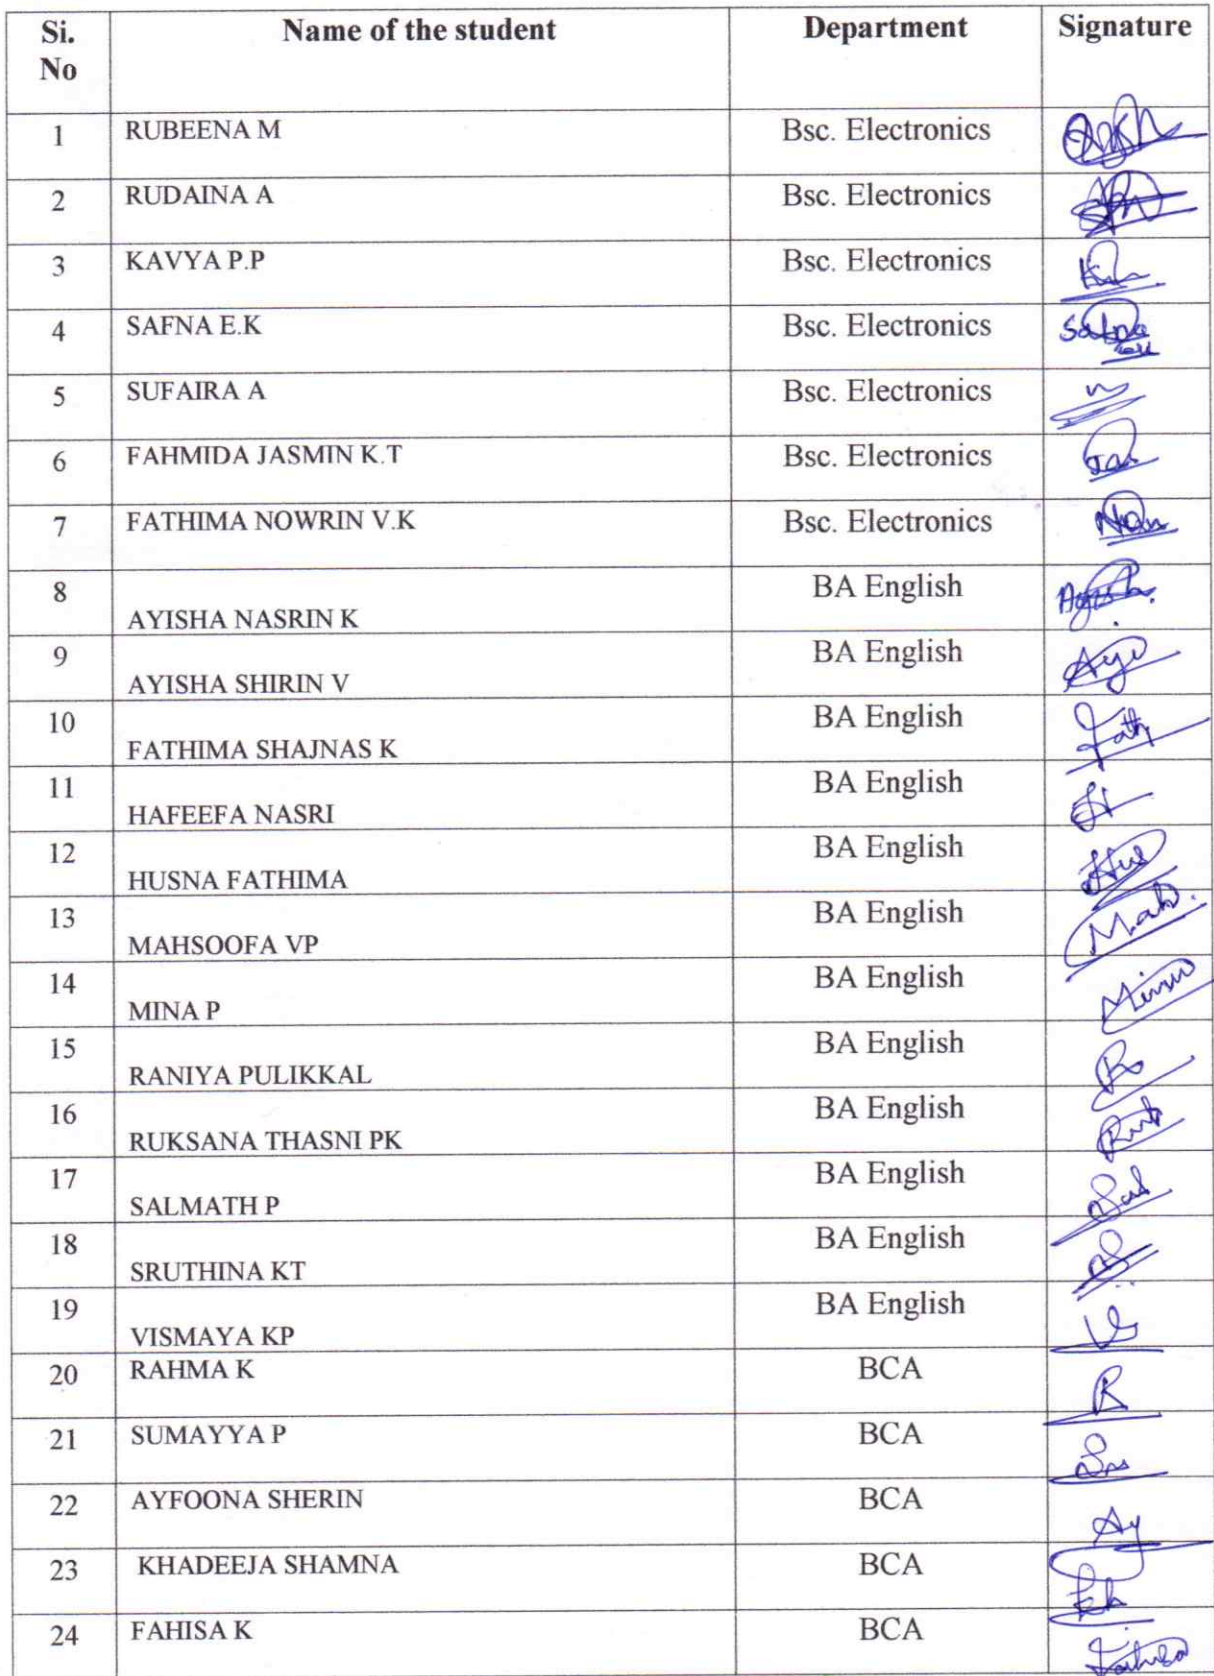 Si. No Name of the student Department Signature
1 RUBEENA M Bsc. Electronics
2 RUDAINA A Bsc. Electronics
3 KAVYA P.P Bsc. Electronics
4 SAFNA E.K Bsc. Electronics Safna
5 SUFAIRA A Bsc. Electronics
6 FAHMIDA JASMIN K.T Bsc. Electronics
7 FATHIMA NOWRIN V.K Bsc. Electronics
8 AYISHA NASRIN K BA English
9 AYISHA SHIRIN V BA English
10 FATHIMA SHAJNAS K BA English Fath
11 HAFEEFA NASRI BA English
12 HUSNA FATHIMA BA English
13 MAHSOOFA VP BA English
14 MINA P BA English
15 RANIYA PULIKKAL BA English
16 RUKSANA THASNI PK BA English
17 SALMATH P BA English
18 SRUTHINA KT BA English
19 VISMAYA KP BA English
20 RAHMA K BCA R
21 SUMAYYA P BCA
22 AYFOONA SHERIN BCA Ay
23 KHADEEJA SHAMNA BCA
24 FAHISA K BCA